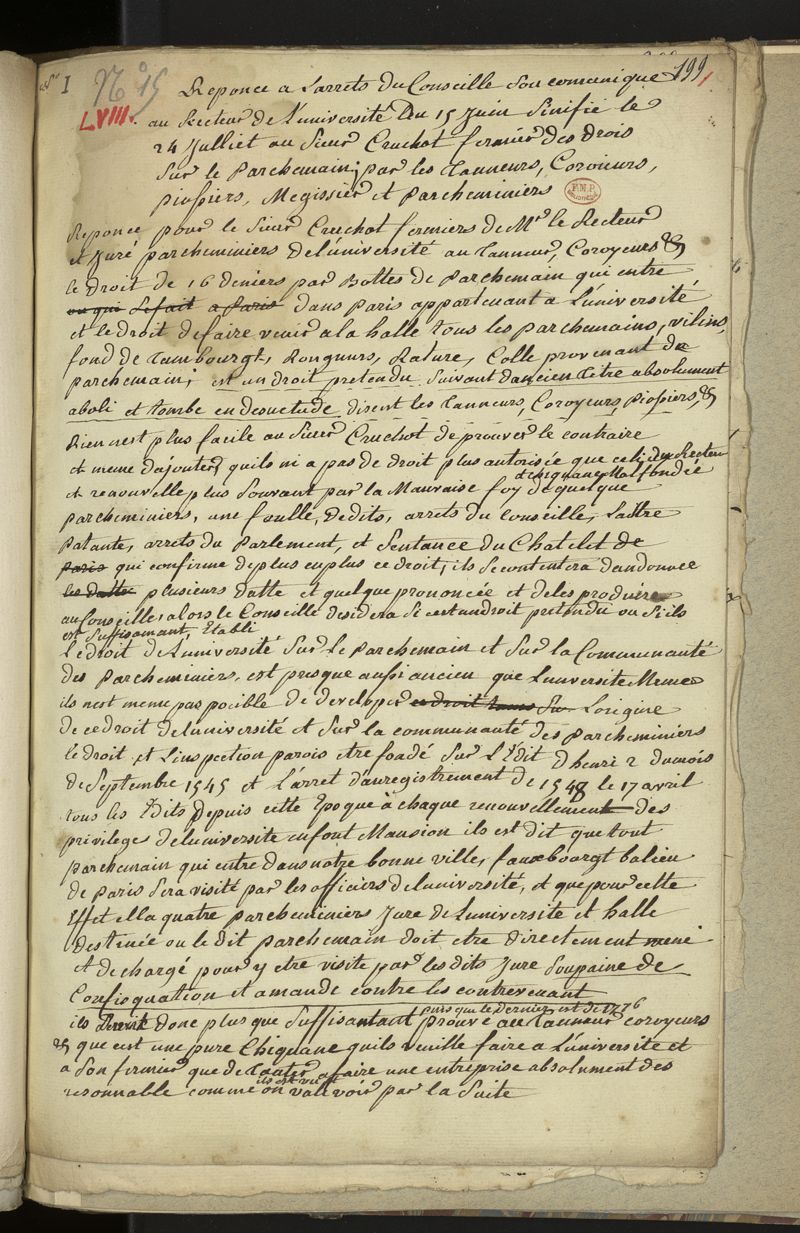 I N° 15 199
LVIII.
Reponce a Larrets Du Conseille Son comunique
au Recteur de L'université Du 15 Juin Sinifié le
24 Julliet au Sieur Cruchot fermier des Drois
Sur le Parchemain; par les Tanneurs, Coroieurs,
piossiers, Megissier et Parcheminiers
Reponce pour le Sieur Cruchot fermiers de Mr le Recteur
et Juré parcheminiers de l'université au Tanneur, Coroyeurs &
le droit de 16 deniers par Bottes de Parchemain qui entre
ou qui Se fait a Paris dans Paris appartenant a L'université
et le droit de faire venir a la halle tous les parchemains, vilins,
fond de Tambourgt, Rongnurs, Rature, Colle provenant de
parchemain; est un droit pretendu Suivant d'ancien Titre absolument
aboli et tombe en desuetude disent les Tanneurs, Coroyeurs, piossiers, &
Rien n'est plus facile au Sieur Cruchot de prouver le contraire
et meme d'ajouter, quils ni a pas de droit plus autorisée que celui du Recteur
et chiquane Mal fondée
et renouvelle plus Souvant par la Mauvaise foy de quelque
parcheminiers, une foulle, Dedits, arrets du Conseille, Laittre
Patante, arrets du Parlement, et Sentance du Chatelet de
Paris qui confirme de plus en plus ce droit, ils Se contentera d'en donnée
les datte plusieurs datte et quelque prononcée et de les produire
au Conseille, alors le Conseille desidera Si c'est un droit pretendu ou Si ils
est Suffisamant, Etabli
Le droit de L'université Sur Le Parchemain et Sur la Communauté
des Parcheminiers, est presque aussi ancien que L'université Meme
ils n'est meme pas pocible de developer ce droit Sur Lorigine
de ce droit de l'université et Sur la communauté des parcheminiers
le droit et L'inspection parois etre fondé Sur L'Edit d'henri 2 du mois
de Septembre 1545 et L'arret d'anregistrement de 1548 le 17 avril
tous les Edits Depuis cette Epoque à chaque renouvellement des
privileges de l'université en font Mansion ils est dit que tout
parchemain qui entre dans notre bonne ville, fauxbourgt balieu
de Paris Sera visité par les officiers de l'université, et que pour cette
Effet ella quatre parcheminiers Jure de L'université et halle
destinée ou le dit parchemain doit etre directement mené
et dechargé pour y etre visite par les dits Jure Sou paine de
Confisquation et amande contre les contrevenant
puis que le dernier est de 1776
ils donc plus que Suffisantant prouvé au Tanneur coroyeurs
& que cest une pure Chiquane quils veuille faire a L'université et
a Son fermier que de Tanter a faire une entreprise absolument des
ils est
resonnable comme on va voir par la Suite